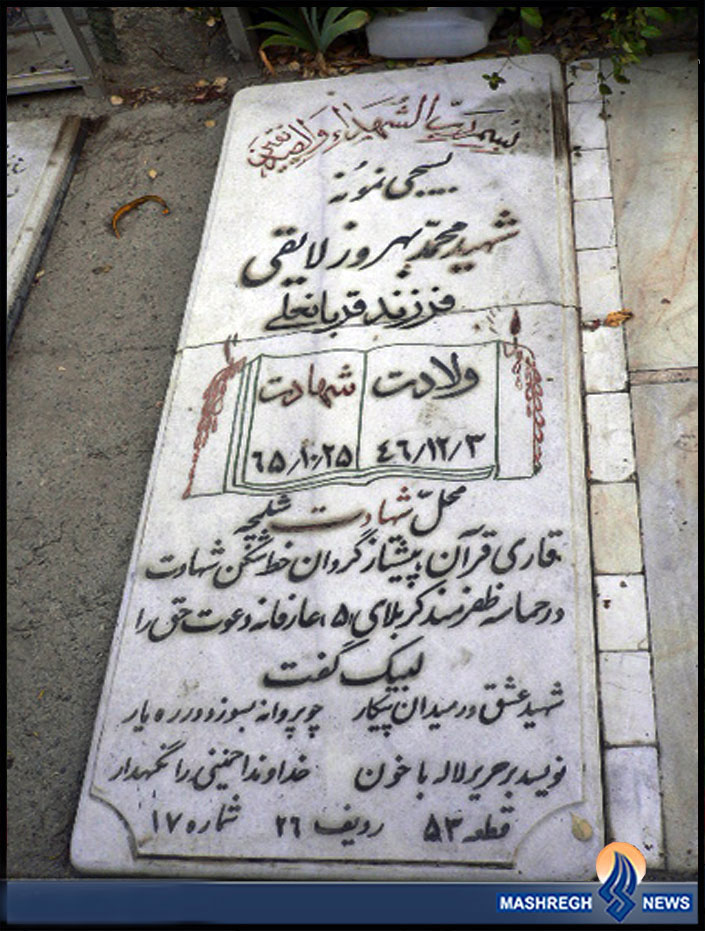 بسم رب الشهداء والصدیقین
بسیجی نمونه
شهید محمّد بهروز لایقی
فرزند قربانعلے
ولادت
۴۶/۱۲/۳
شهادت
۶۵/۱۰/۲۵
محلّ شهادت شلمچه
قاری قرآن، پیشتاز گروان خط شکن شهادت
در حماسه ظفرمند کربلای (۵) عارفانه دعوت حق را
لبیک گفت
شهید عشق در میدان پیکار چو پروانه بسوزد در ره یار
نویسد بر حریر لاله با خون خداوندا خمینی را نگهدار
قطعه ۵۳ ردیف ۲۶ شماره ۱۷
MASHREGH NEWS